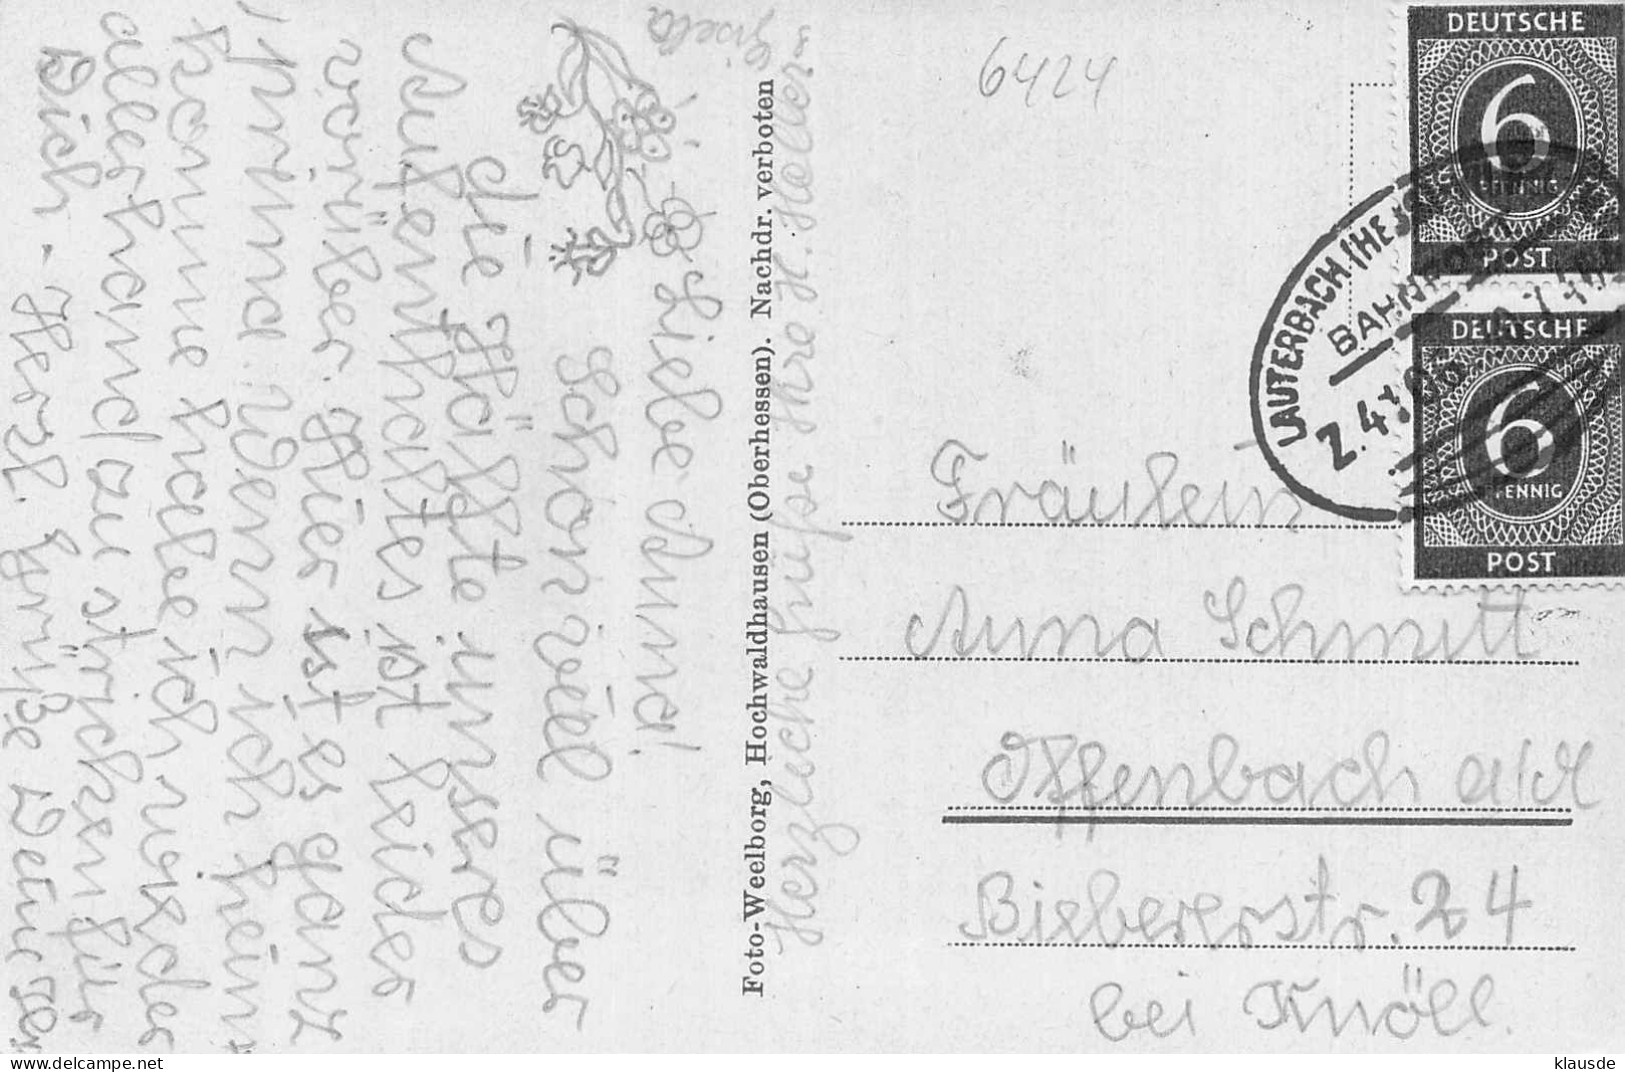 Liebe Anna!
Schon viel über
die Hälfte unseres
Aufenthaltes ist leider
vorüber. Hier ist es ganz
prima. Wenn ich heim
komme habe ich wieder
allerhand zu stricken für
Dich - Herzl. Grüße Deine
Gisela
Herzliche Grüße Ihre H. Holler
Foto-Weelborg, Hochwaldhausen (Oberhessen). Nachdr. verboten
6424
DEUTSCHE
6
PFENNIG
POST
DEUTSCHE
6
PFENNIG
POST
LAUTERBACH (HES
BAHN
Z.4
Fräulein
Anna Schmitt
Offenbach a/M
Biebererstr. 24
bei Knöll.
klausde